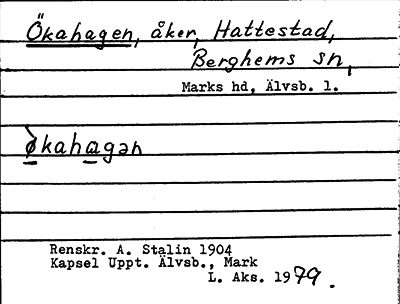 Ökahagen, åker, Hattestad,
Berghems sn,
Marks hd, Älvsb. l.
økahagən
Renskr. A. Stalin 1904
Kapsel Uppt. Älvsb., Mark
L. Aks. 1979.